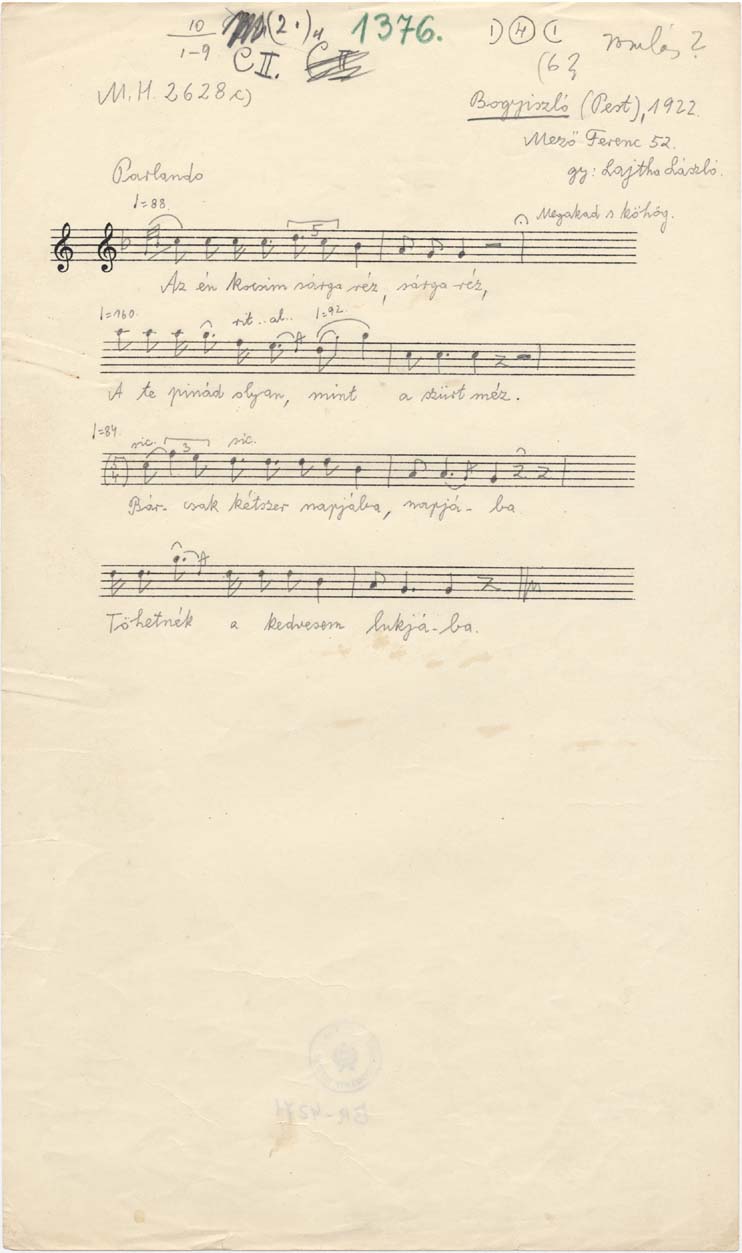 10 (2.)4 1376. 1) 4 (1
1-9 C II.
romlás?
M.H. 2628 c)
Bogyiszló (Pest), 1922.
Mező Ferenc 52.
gy: Lajtha László.
Parlando
=88.
5
Megakad s köhög.
Az én kocsim sárga réz, sárga réz,
=160. rit..al.. =92.
A te pinád olyan, mint a szürt méz.
=84. sic. 3 sic.
(5/4)
Bár- csak kétszer napjába, napjá- ba
Töhetnék a kedvesem lukjá-ba.